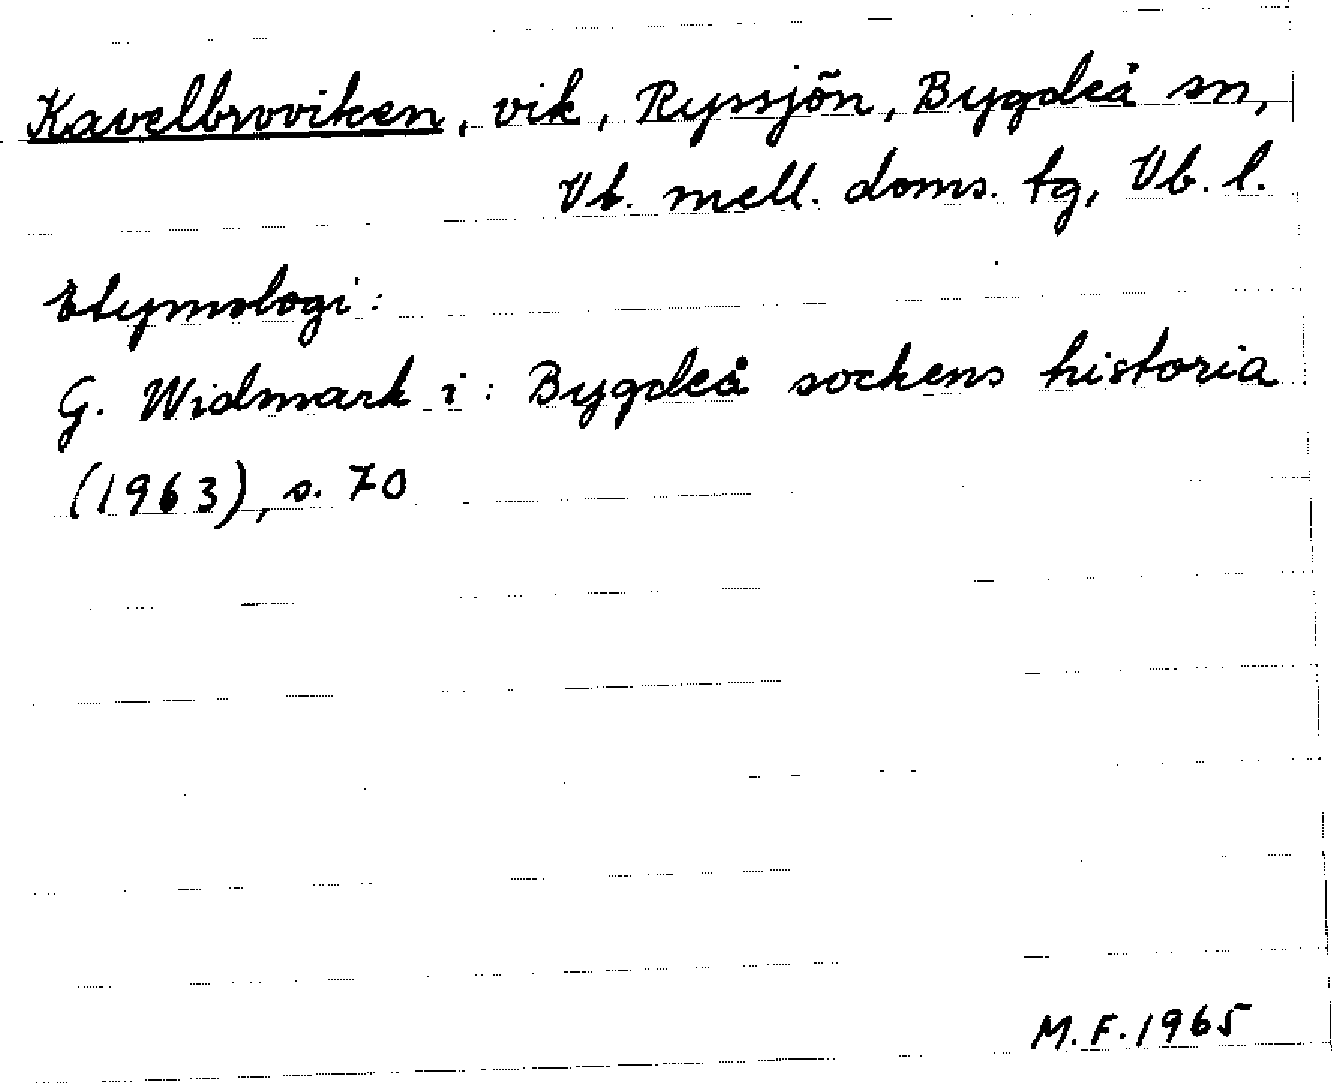 Kavelbroviken, vik, Ryssjön, Bygdeå sn,
Vb. mell. doms. tg, Vb. l.
Etymologi:
G. Widmark i: Bygdeå sockens historia
(1963), s. 70
M.F. 1965